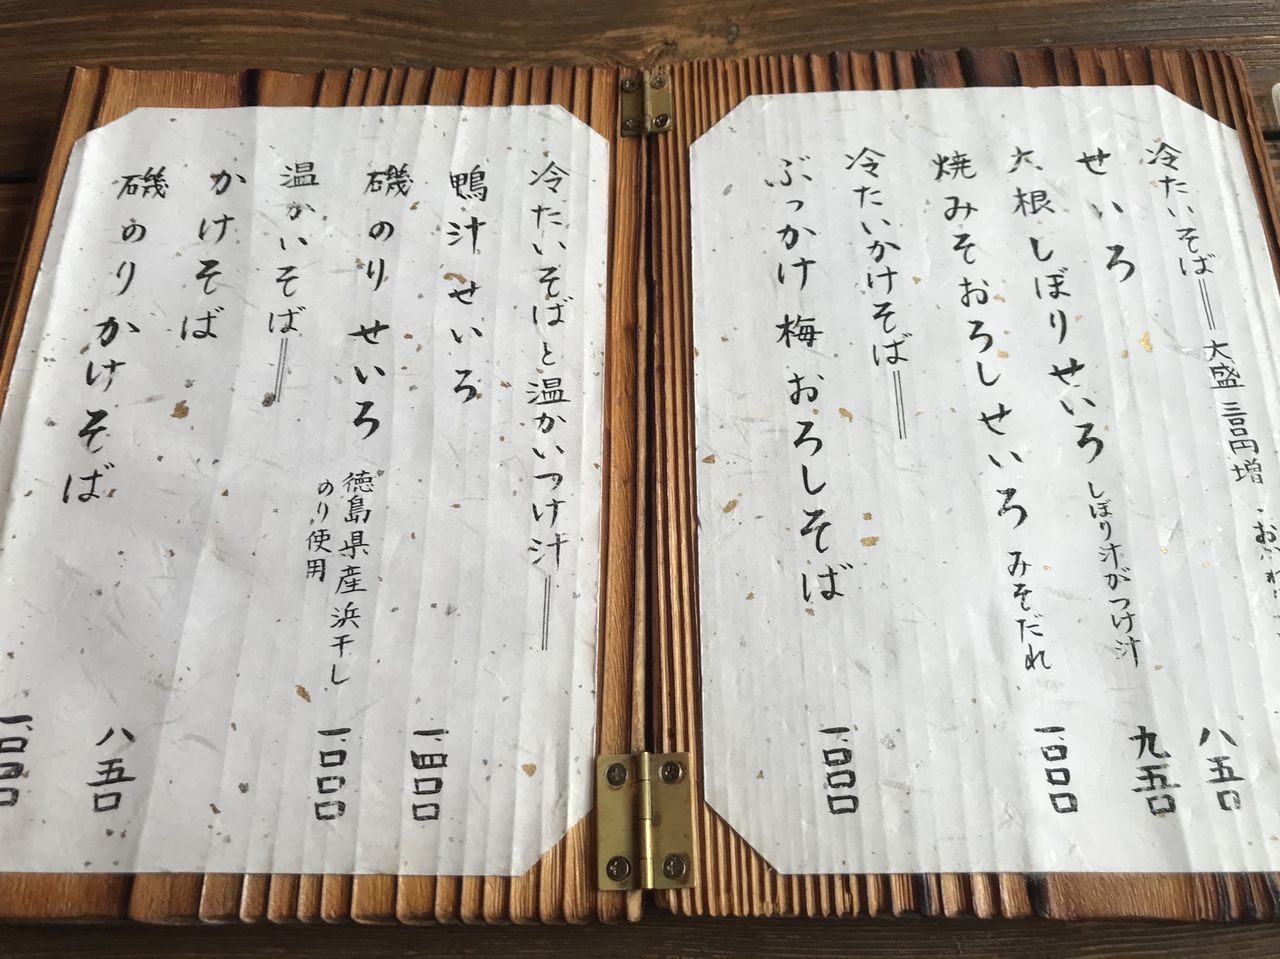 冷たいそば 大盛 三〇〇円増
せいろ 八五〇
大根しぼりせいろ しぼり汁がつけ汁 九五〇
焼みそおろしせいろ みそだれ 一、〇〇〇
冷たいかけそば
ぶっかけ梅おろしそば 一、〇〇〇
冷たいそばと温かいつけ汁
鴨汁せいろ 一、四〇〇
磯のりせいろ 徳島県産浜干し
のり使用 一、〇〇〇
温かいそば
かけそば 八五〇
磯のりかけそば 一、〇〇〇